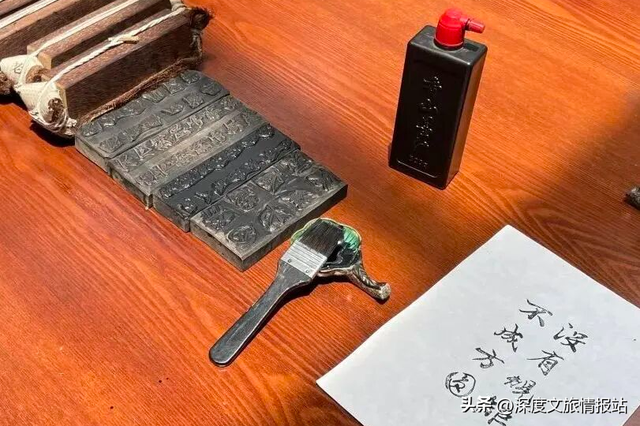 没有规矩
不成方圆
头条 @深度文旅情报站